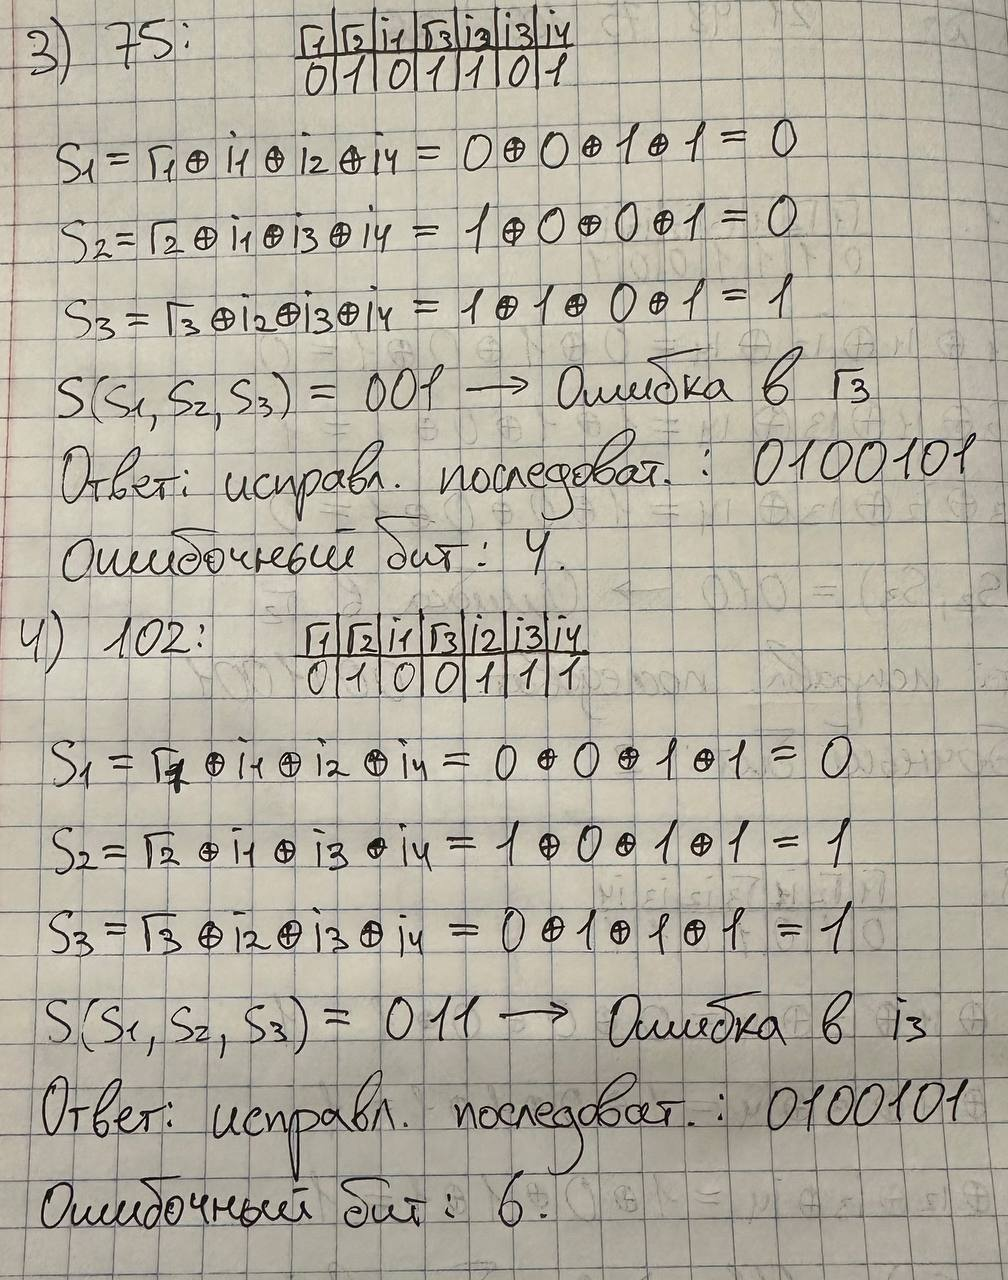 3) 75: r1 r2 i1 r3 i2 i3 i4
0 1 0 1 1 0 1
S1 = r1 ⊕ i1 ⊕ i2 ⊕ i4 = 0 ⊕ 0 ⊕ 1 ⊕ 1 = 0
S2 = r2 ⊕ i1 ⊕ i3 ⊕ i4 = 1 ⊕ 0 ⊕ 0 ⊕ 1 = 0
S3 = r3 ⊕ i2 ⊕ i3 ⊕ i4 = 1 ⊕ 1 ⊕ 0 ⊕ 1 = 1
S(S1, S2, S3) = 001 → Ошибка в r3
Ответ: исправл. последоват.: 0100101
Ошибочный бит: 4.
4) 102: r1 r2 i1 r3 i2 i3 i4
0 1 0 0 1 1 1
S1 = r1 ⊕ i1 ⊕ i2 ⊕ i4 = 0 ⊕ 0 ⊕ 1 ⊕ 1 = 0
S2 = r2 ⊕ i1 ⊕ i3 ⊕ i4 = 1 ⊕ 0 ⊕ 1 ⊕ 1 = 1
S3 = r3 ⊕ i2 ⊕ i3 ⊕ i4 = 0 ⊕ 1 ⊕ 1 ⊕ 1 = 1
S(S1, S2, S3) = 011 → Ошибка в i3
Ответ: исправл. последоват.: 0100101
Ошибочный бит: 6.